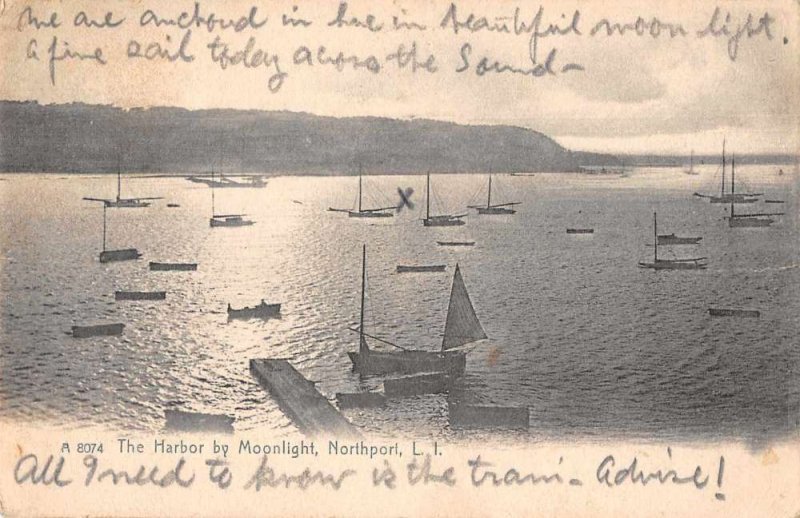 We are anchord in here in beautiful moon light.
A fine sail today across the Sound —
x
A 8074 The Harbor by Moonlight, Northport, L. I.
All I need to know is the train - Advise!